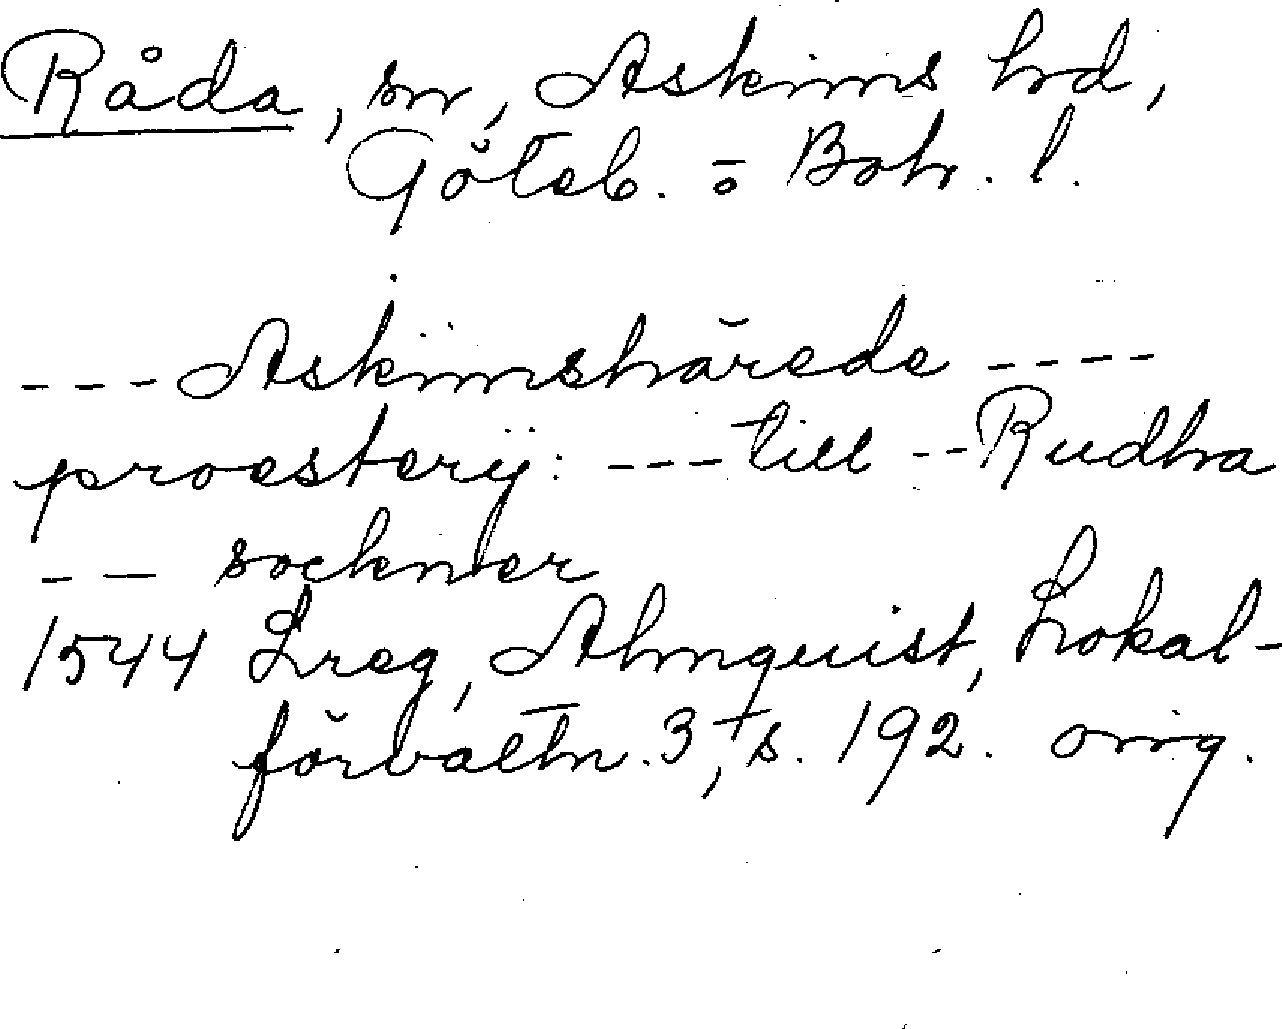 Råda, sn, Askims hrd,
Göteb. o Boh. l.
--- Askimshärede ----
proesterij: --- till -- Rudha
-- sockner
1544 Lreg, Almquist, Lokal-
förvaltn. 3, s. 192. orig.